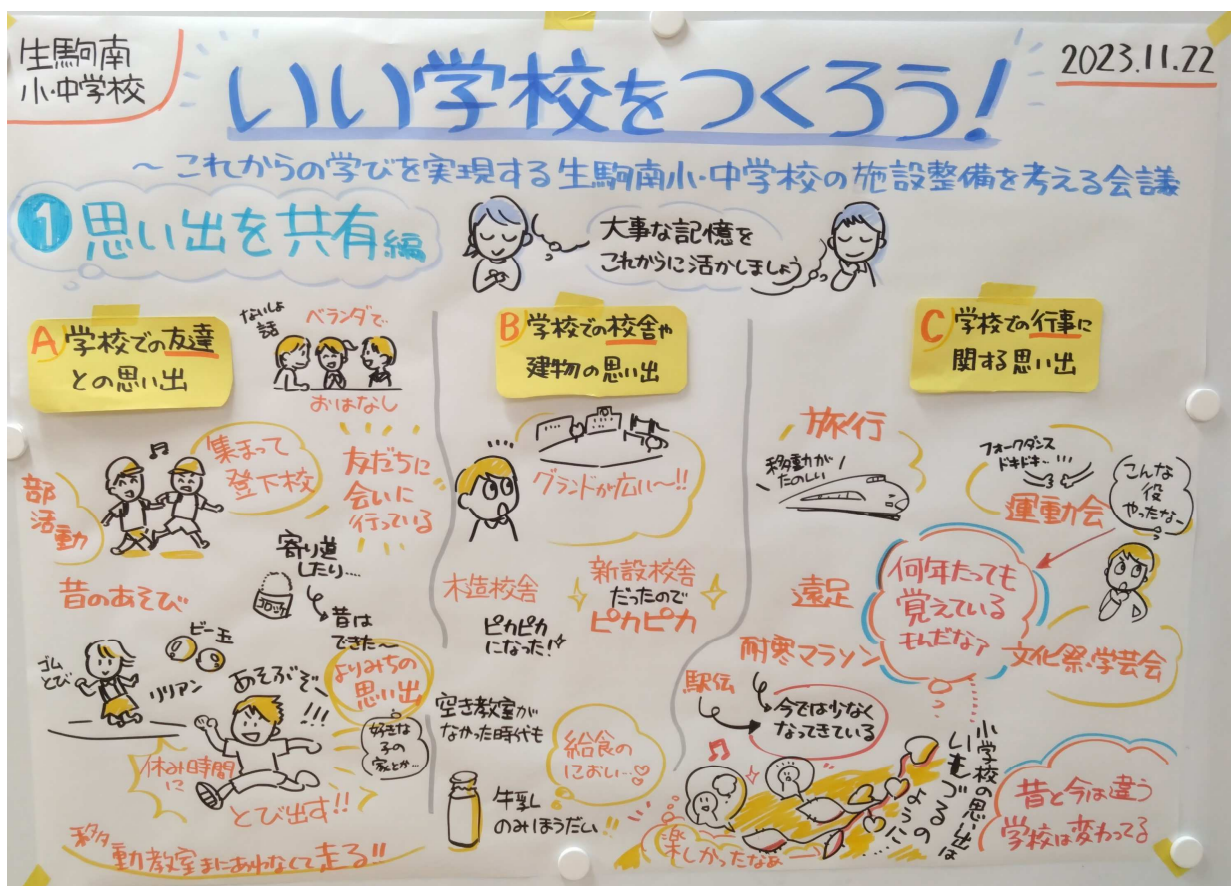 生駒南
小・中学校
2023.11.22
いい学校をつくろう!
～これからの学びを実現する生駒南小・中学校の施設整備を考える会議
1 思い出を共有編
大事な記憶を
これからに活かしましょう
A 学校での友達
との思い出
ないしょ
話
ベランダで
おはなし
集まって
登下校
部活動
友だちに
会いに
行っている
寄り道
したり…
コロッケ
昔は
できた～
よりみちの
思い出
好きな
子の
家とか…
昔のあそび
ビー玉
ゴム
とび
リリアン
あそぶぞ～!!!
休み時間
に
とび出す!!
移動教室まにあわなくて走る!!
B 学校での校舎や
建物の思い出
グランドが広い～!!
木造校舎
ピカピカ
になった!
新設校舎
だったので
ピカピカ
空き教室が
なかった時代も
給食の
におい…♡
牛乳
のみほうだい!!
C 学校での行事に
関する思い出
旅行
移動が
たのしい
フォークダンス
ドキドキ…
運動会
こんな
役
やったなー
何年たっても
覚えている
もんだなァ
遠足
文化祭・学芸会
耐寒マラソン
駅伝
今では少なく
なってきている
小学校の思い出は
いもづるの
ように…
楽しかったなぁ
昔と今は違う
学校は変わってる